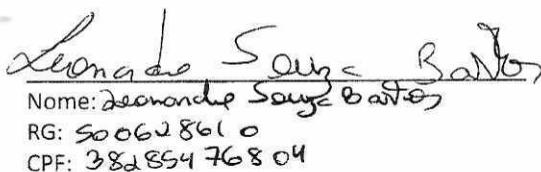 Leonardo Souza Bastos
Nome: Leonardo Souza Bastos
RG: 500628610
CPF: 38285476804